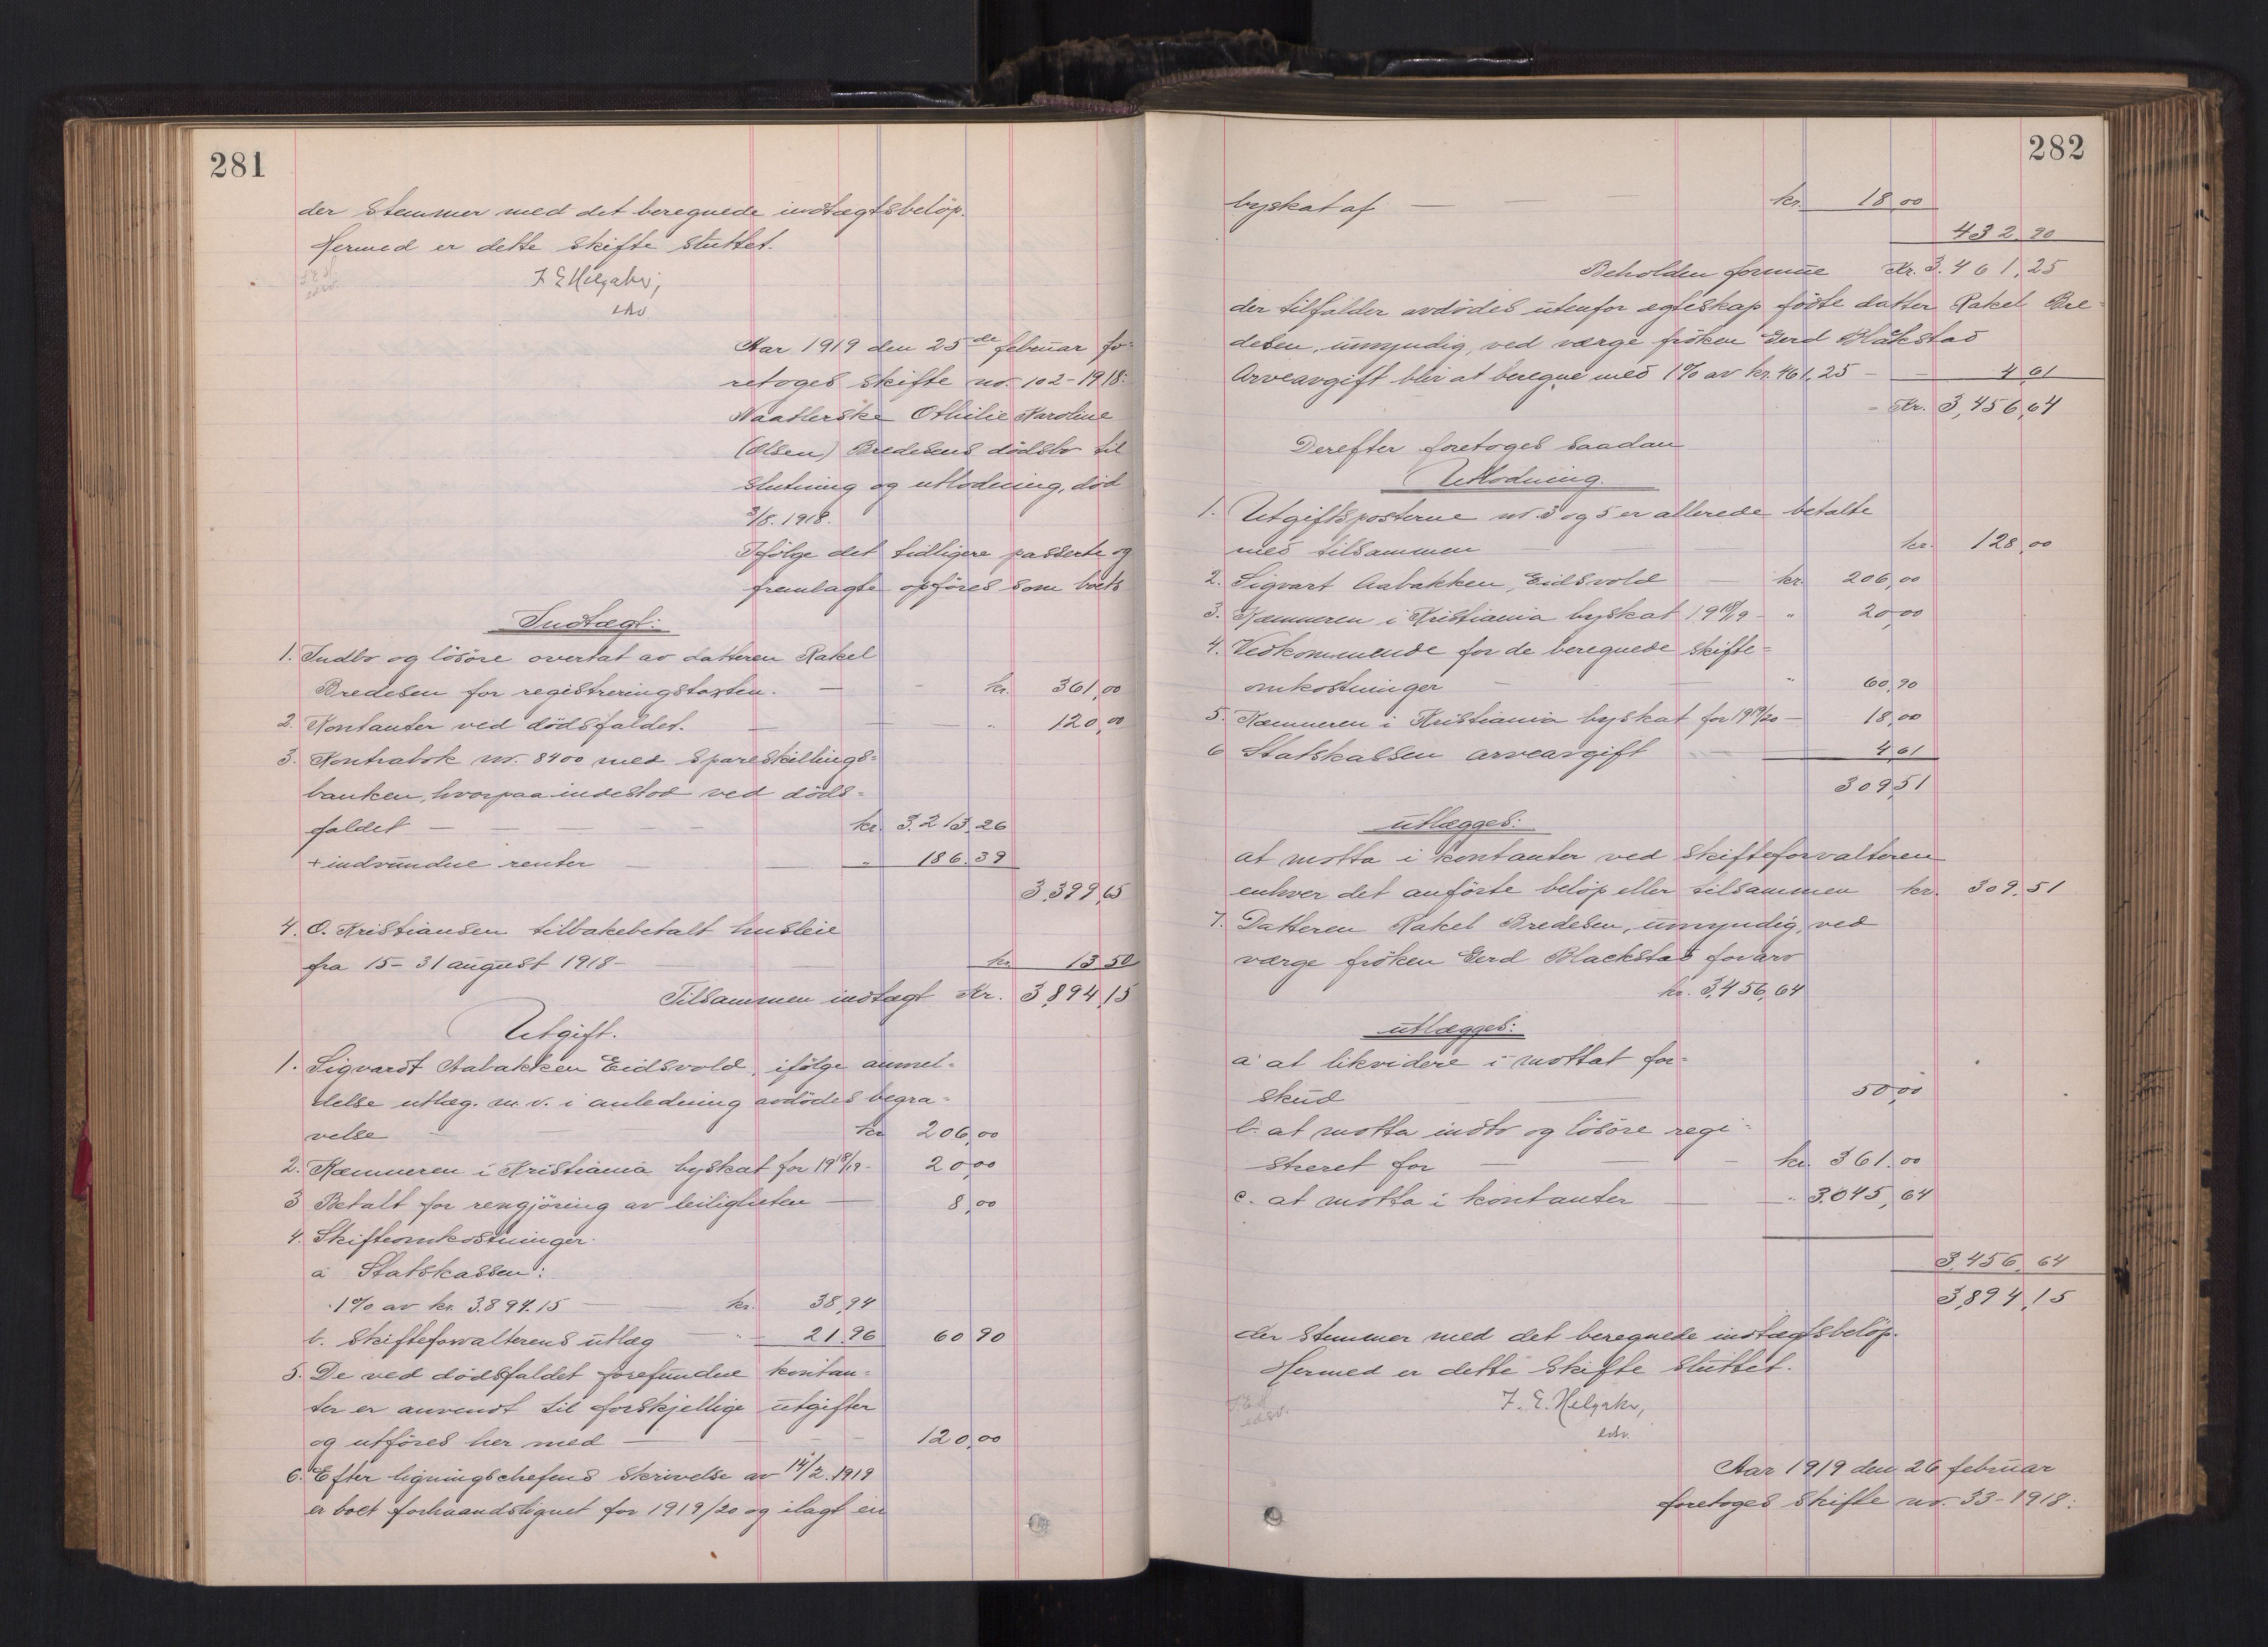 281
der stemmer med det beregnede indtægtsbeløp.
Hermed er dette skifte sluttet.
Aar 1919 den 25de februar fo-
retoges skifte no. 102-1918:
Vaatlerske Othilie Karoline
(Olsen) Bredesens dødsbo til
slutning og utlodning, död
3/8. 1918.
Ifølge det tidligere passerte og
fremlagte opføres som boets
Indtægt:
1. Indbo og lösöre overtat av datteren Rakel
Bredesen for registreringstaxten. — kr. 361,00
2. Kontanter ved dödsfaldet. — " 120,00
3. Kontrabok no. 8400 med spareskillings-
banken, hvorpaa indestod ved döds-
faldet — kr. 3.213,26
+ indvundne renter — " 186.39
3.399,65
4. O. Kristiansen tilbakebetalt husleie
fra 15-31 august 1918 - kr 13 50
Tilsammen indtægt Kr. 3,894,15
Utgift.
1. Sigvardt Aabakken Eidsvold, ifølge anmel-
delse utlæg m.v. i anledning avdödes begra-
velse — kr 206,00
2. Kæmneren i Kristiania byskat for 1918/19 - 20,00
3 Betalt for rengjöring av leiligheten — 8,00
4. Skifteomkostninger.
a Statskassen:
1% av kr. 3.894.15 — kr. 38,94
b. Skifteforvalterens utlæg — " 21.96 60 90
5. De ved dödsfaldet forefundne kontan-
ter er anvendt til forskjellige utgifter
og utföres her med — 120,00
6. Efter ligningschefens skrivelse av 14/2. 1919
er boet forhaandslignet for 1919/20 og ilagt en
282
byskat af — kr. 18,00
432,90
Beholden formue Kr. 3.461,25
der tilfalder avdödes utenfor egteskap födte datter Rakel Bre-
desen, umyndig, ved værge fröken Gerd Blakstad
Arveavgift blir at beregne med 1% av kr. 461,25 - — 4,61
- Kr. 3,456,64
Derefter foretoges saadan
Utlodning.
1. Utgiftsposterne nr. 3 og 5 er allerede betalte
med tilsammen kr. 128,00
2. Sigvart Aabakken, Eidsvold — kr. 206,00
3. Kæmneren i Kristiania byskat 1918/19 - " 20,00
4. Vedkommende for de beregnede skifte-
omkostninger — " 60,90
5. Kæmneren i Kristiania byskat for 1919/20 — 18,00
6 Statskassen arveavgift 4,61
309,51
utlægges:
at motta i kontanter ved skifteforvalteren
enhver det anförte belöp eller tilsammen kr. 309,51
7. Datteren Rakel Bredesen, umyndig, ved
værge fröken Gerd Blackstad for arv
kr. 3,456,64
utlægges:
a at likvidere i mottat for-
skud — 50,00
b. at motta indbo og lösöre regi-
streret for — kr. 361.00
c. at motta i kontanter — " 3.045,64
3.456,64
3,894,15
der stemmer med det beregnede indtægtsbelöp.
Hermed er dette skifte sluttet.
Aar 1919 den 26 februar
foretoges skifte no. 33-1918: